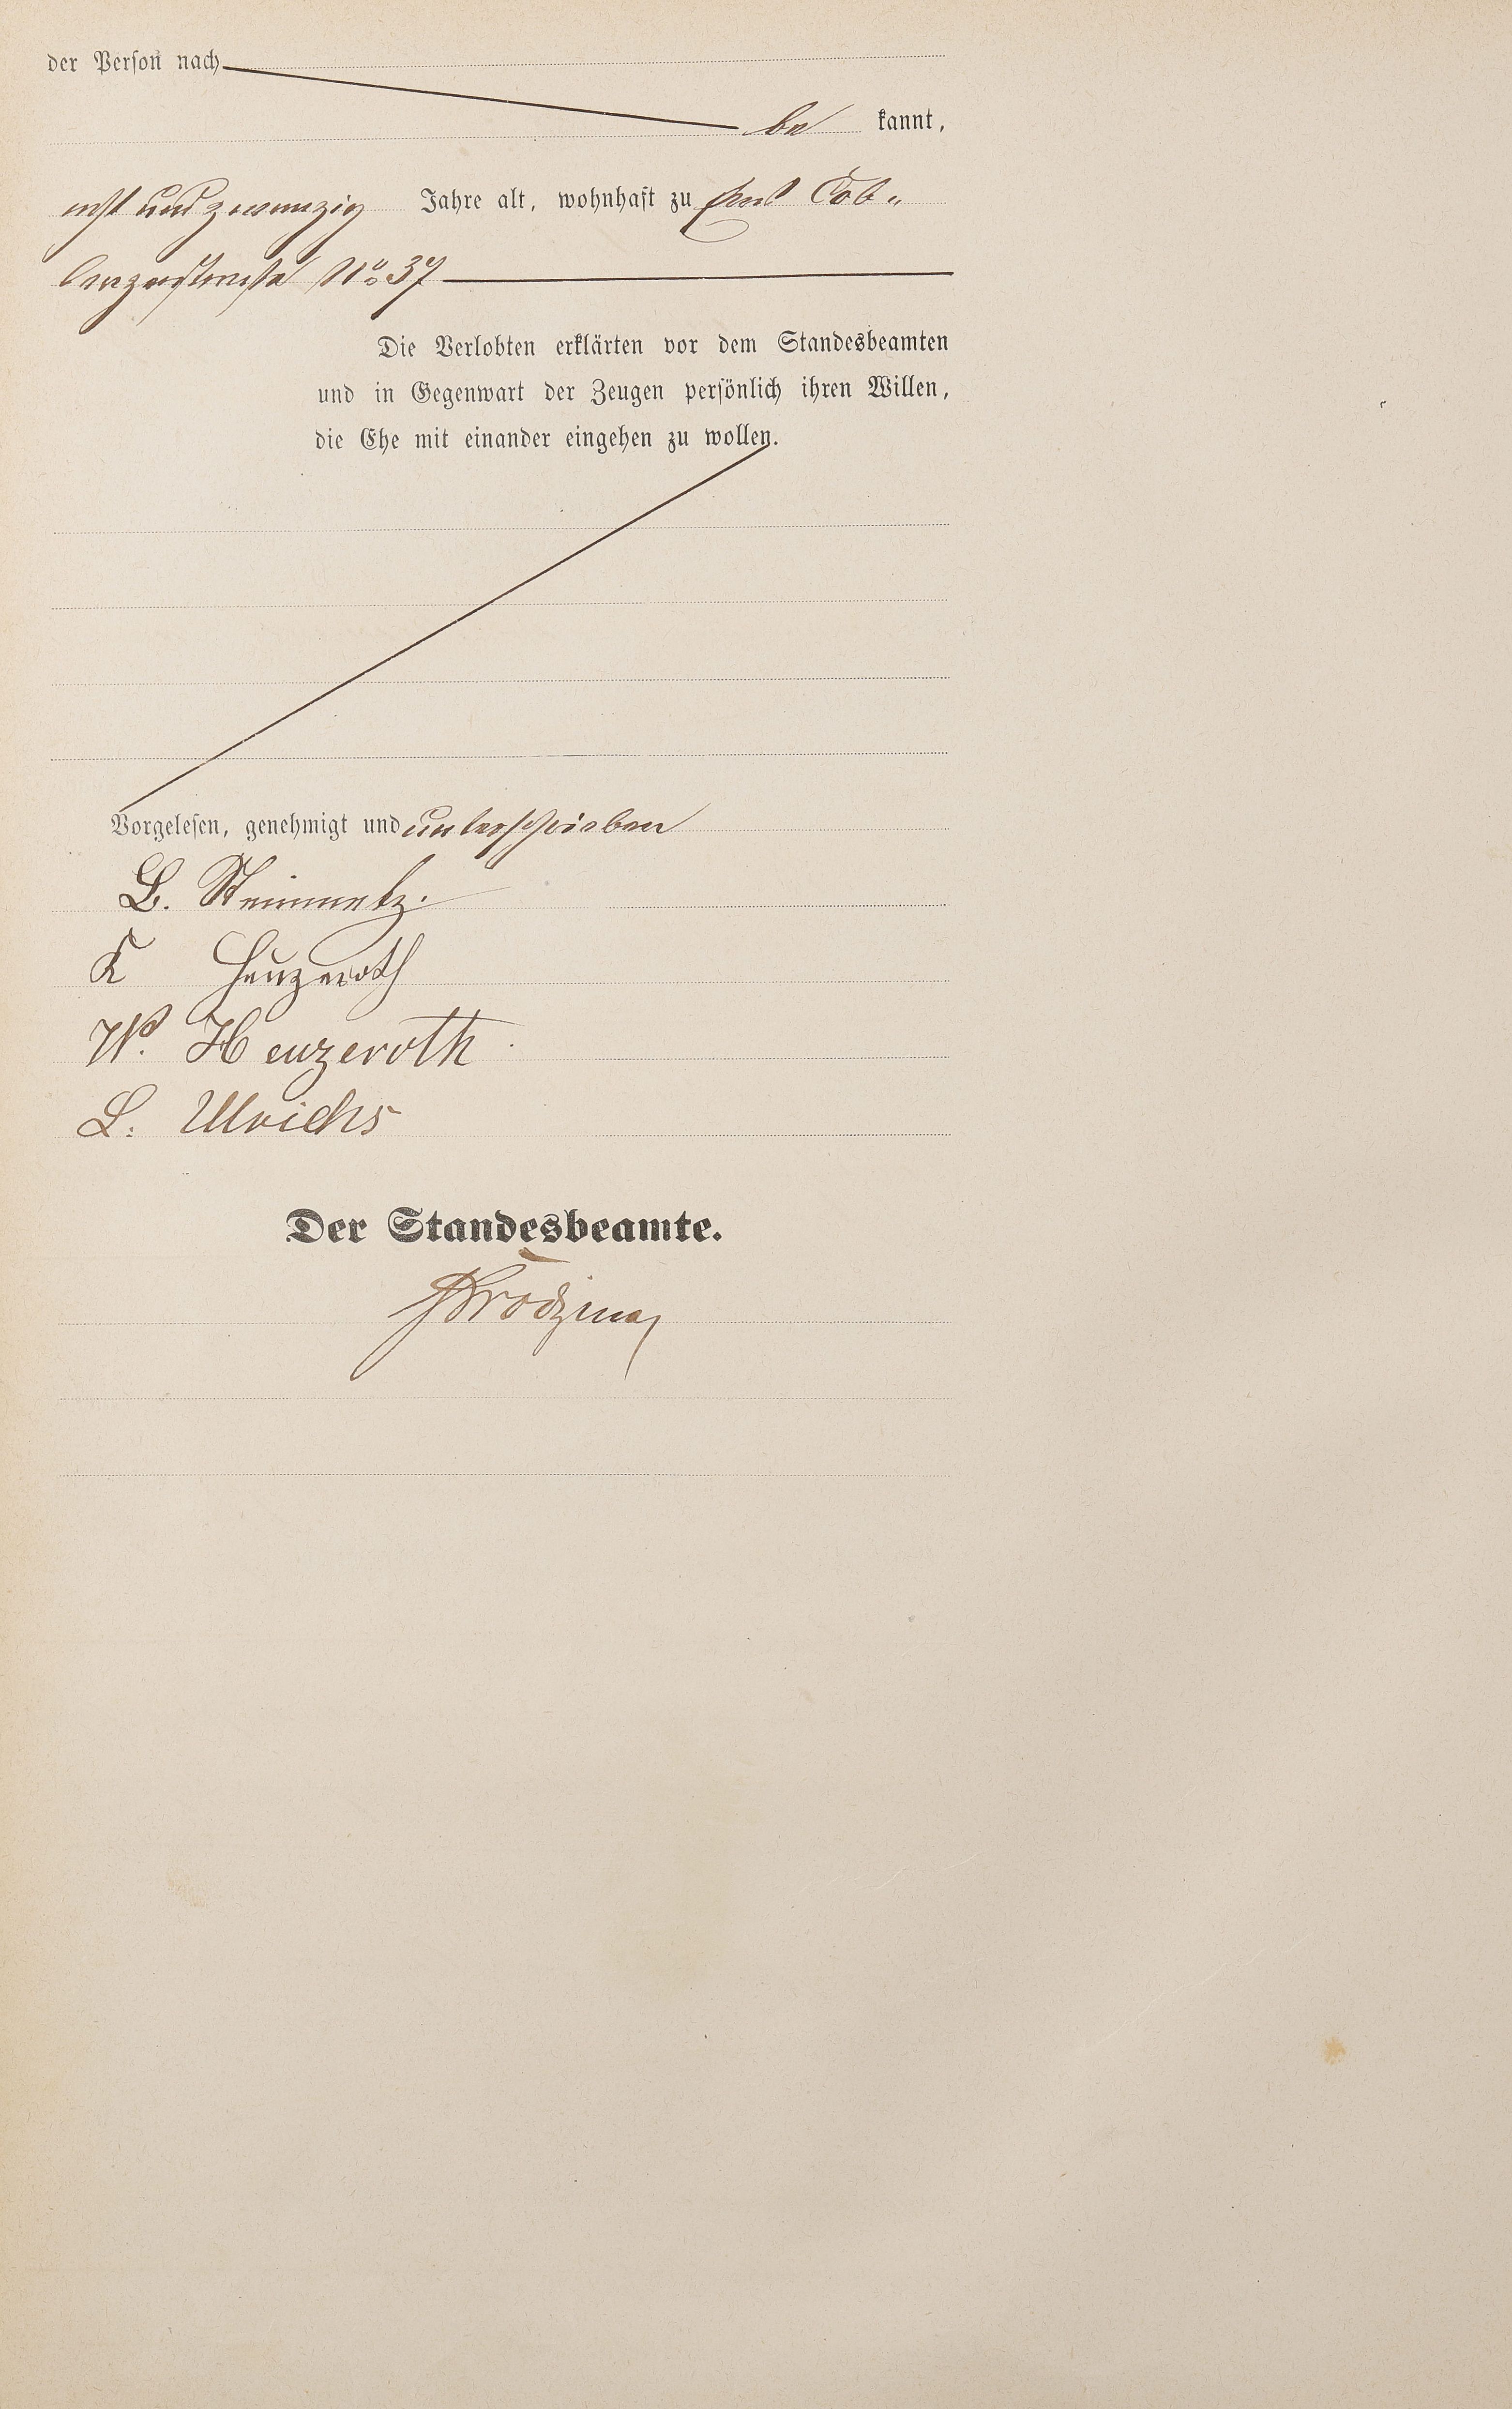 der Person nach
be kannt,
acht und zwanzig Jahre alt, wohnhaft zu Cob-
lenzerstraße No 37
Die Verlobten erklärten vor dem Standesbeamten
und in Gegenwart der Zeugen persönlich ihren Willen,
die Ehe mit einander eingehen zu wollen.
Vorgelesen, genehmigt und unterschrieben
L. Steinmetz.
K Heuzeroth
W. Heuzeroth
L. Ulrichs
Der Standesbeamte.